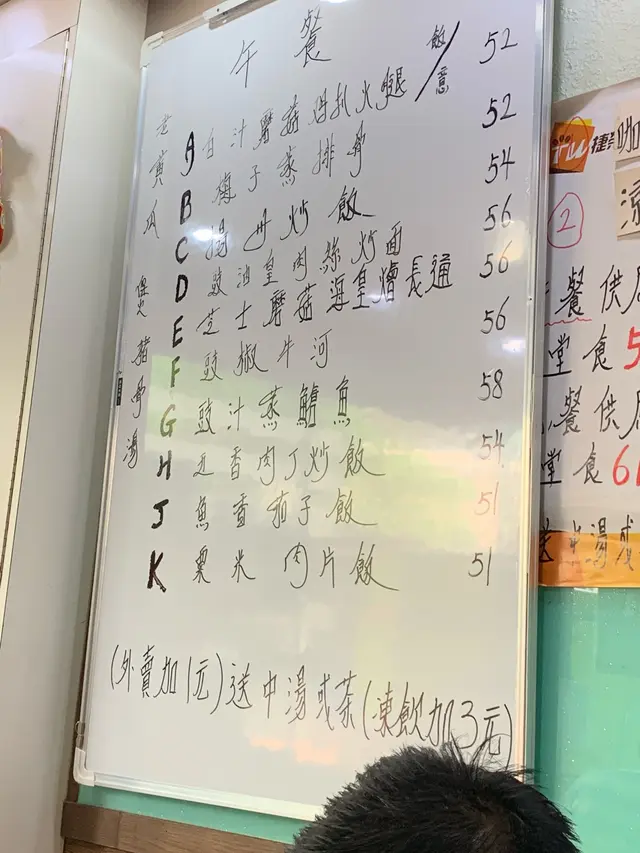 午餐
老黃瓜
煲豬骨湯
A 白汁蘑菇鸡扒火腿 飯/意 52
B 梅子蒸排骨 52
C 揚州炒飯 54
D 豉油皇肉絲炒面 56
E 芝士蘑菇海皇燴長通 56
F 豉椒牛河 56
G 豉汁蒸魚 58
H 五香肉丁炒飯 54
J 魚香茄子飯 51
K 粟米肉片飯 51
(外賣加1元)送中湯或茶(凍飲加3元)
捷榮
咖
流
②
餐供
堂食5
餐供
堂食61
送中湯或